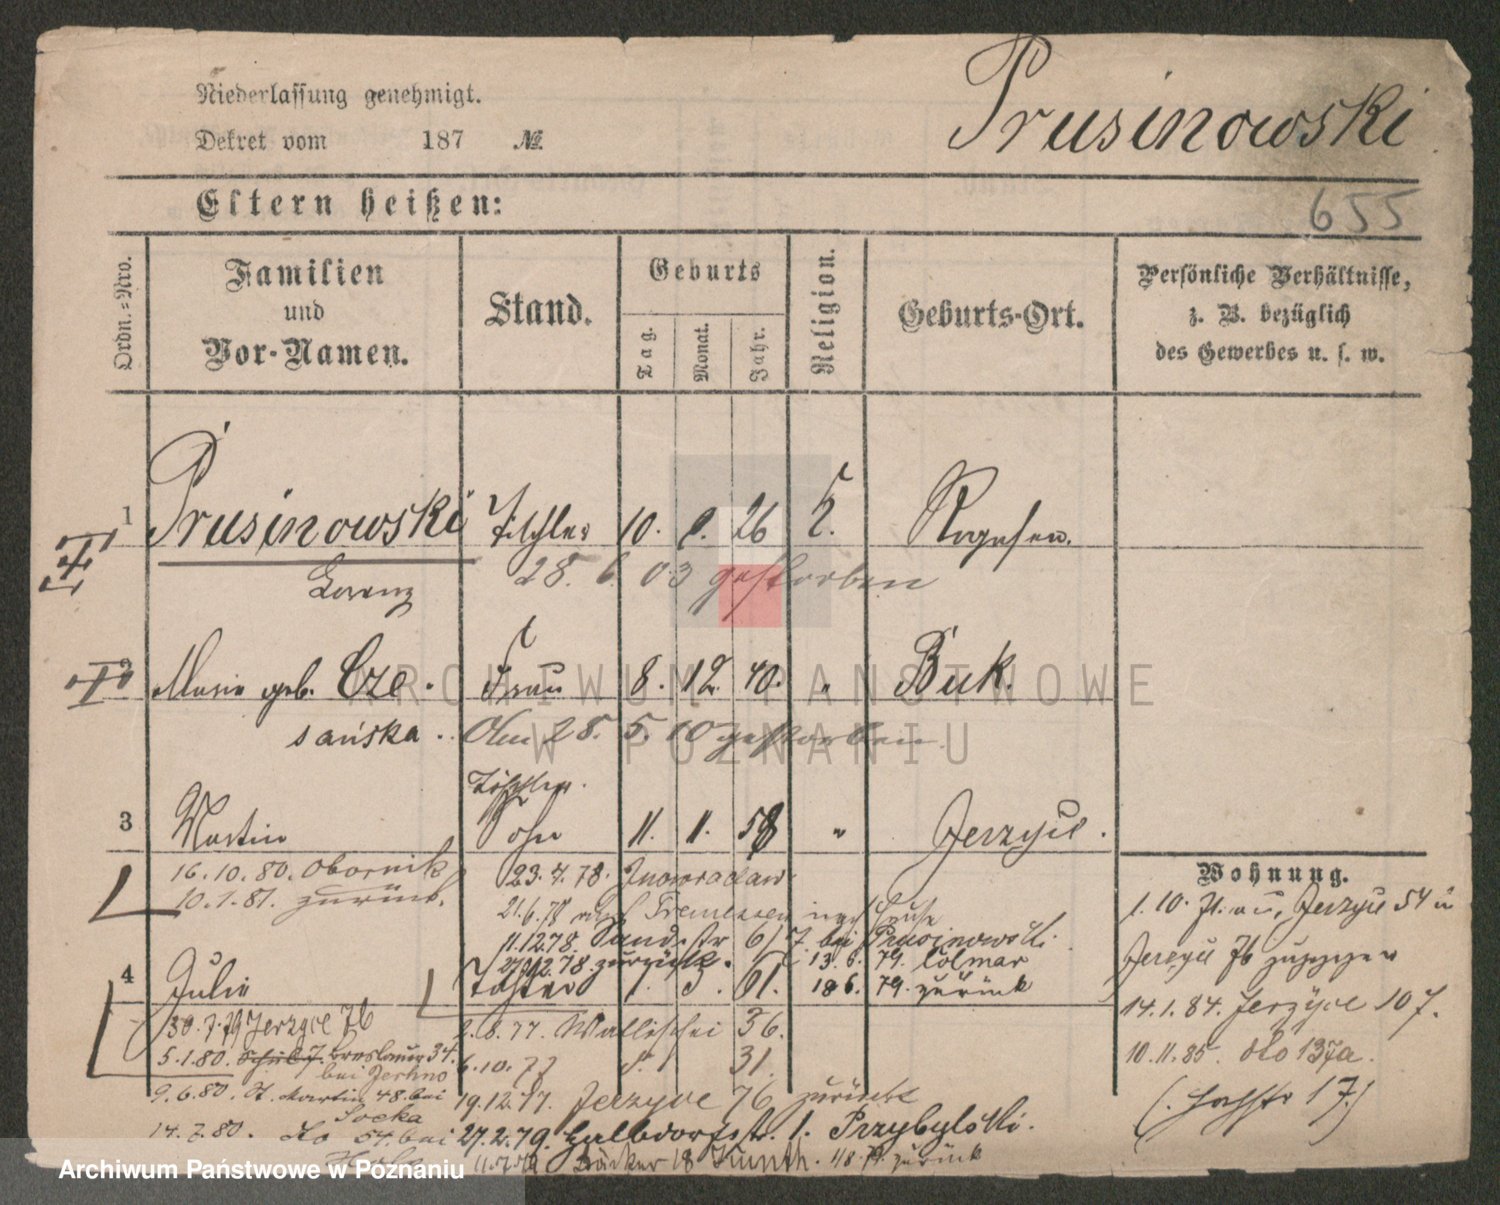 Niederlassung genehmigt.
Dekret vom 187 №
Prusinowski
655
Eltern heißen:
Ordn.-Nro.
Familien
und
Vor-Namen.
Stand.
Geburts
Tag.
Monat.
Jahr.
Religion.
Geburts-Ort.
Persönliche Verhältnisse,
z. B. bezüglich
des Gewerbes u. s. w.
1 Prusinowski Tischler 10. 8. 26 k. Rogasen.
Lorenz
28. 6. 03 gestorben
2 Marie geb. Cze- Frau 8. 12. 40. " Buk.
sańska. Am 28. 5. 10 gestorben.
ARCHIWUM PAŃSTWOWE
W POZNANIU
Tischler.
3 Martin Sohn 11. 1. 58 " Jerzyce.
16.10.80. Obornik
10.1.81. zurück.
23.4.78. Inowraclaw.
21.6.78 nach Tremessen
11.12.78. Sandstr 6/7. bei Prusinowski.
27.12.78. zurück. 13.6.79. Colmar
4 Julie Tochter 1. 5. 61. 18 6. 79. zurück
30.7.79 Jerzyce 76
2.8.77. Wallischei 36.
5.1.80. Breslauer 34.
bei Jerkno
6.10.77 31.
9.6.80. St. Martin 48. bei
Socka
19.12.77. Jerzyce 76 zurück
14.7.80. do 54. bei
27.2.79. Halbdorfstr. 1. Przybylski.
Bäcker 18 zurück
Wohnung.
1.10. Jerzyce 54 u
Jerzyce 76 zugezogen
14.1.84. Jerzyce 107.
10.11.85. do 137a.
17.)
Archiwum Państwowe w Poznaniu